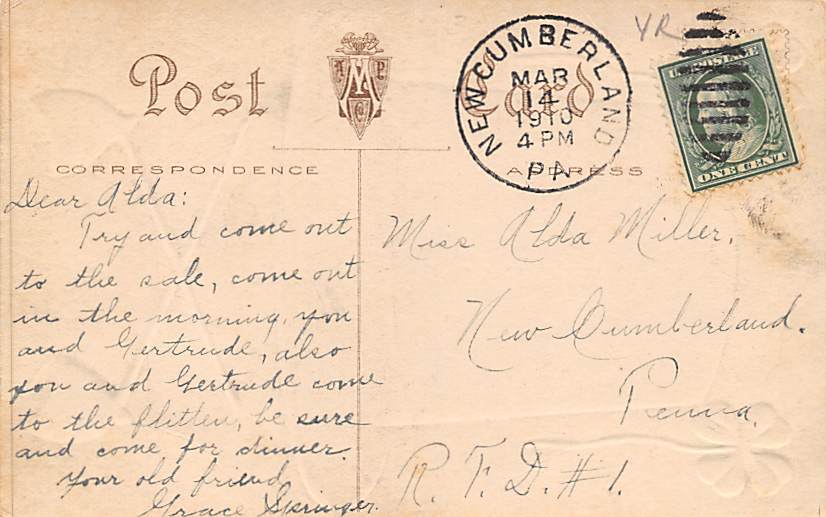 Post Card
NEW CUMBERLAND
MAR
14
1910
4 PM
PA.
YR
U.S. POSTAGE
ONE CENT
A M P Co
CORRESPONDENCE
ADDRESS
Dear Alda:
Try and come out
to the sale, come out
in the morning, you
and Gertrude, also
you and Gertrude come
to the flitten, be sure
and come for dinner.
Your old friend
Grace Springer.
Miss Alda Miller.
New Cumberland.
Penna.
R. F. D. #1.